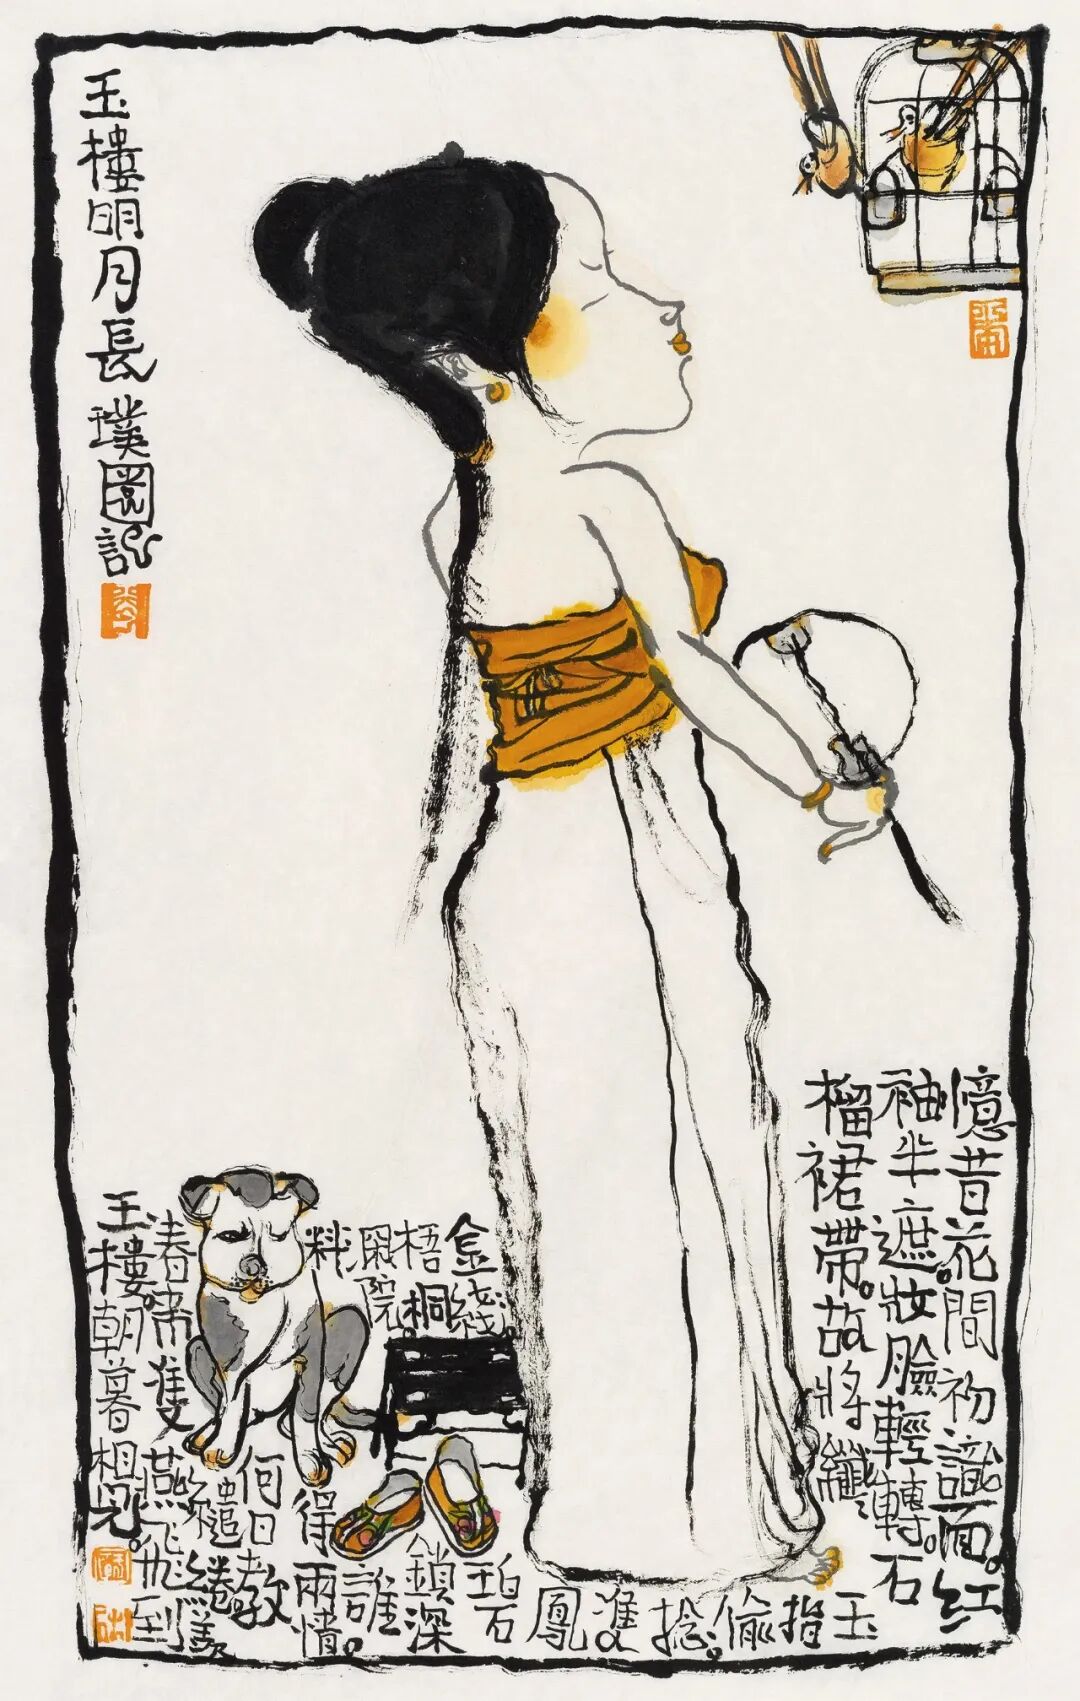 玉樓明月長 璞園記
憶昔花間初識面。紅
袖半遮。妝臉輕轉。石
榴裙帶。故將纖纖
玉指偷捻。雙鳳
金綫。碧
梧桐。鎖深
深院。誰
料得兩情。
何日教
繾綣羨
春來雙燕飛到
玉樓。朝暮相見。